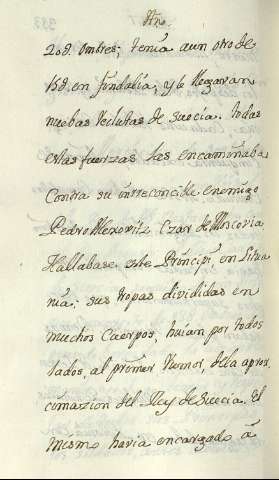 20d. ombres; tenia aun otro de
15d. en finlalia, y le llegavan
nuebas Reclutas de Suecia. todas
estas fuerzas las encaminaba
Contra su irreconcible enemigo
Pedro Alexovitz Czar de Moscovia
Hallabase este Principe en Litua
nia; sus tropas divididas en
muchos Cuerpos, huian por todos
lados, al primer Rumor, de la aprox
cimazion del Rey de Suecia. El
mismo havia encargado à